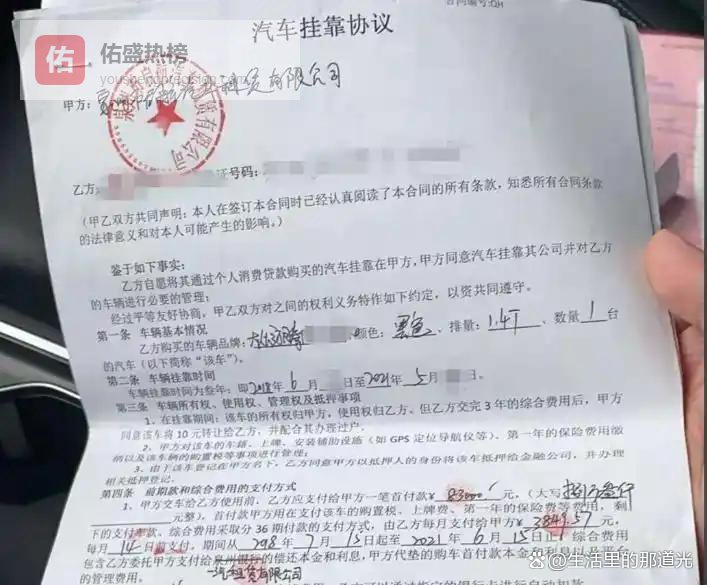 合同编号:QH
佑盛热榜
汽车挂靠协议
甲方:
有限公司
乙方 证号码:
(甲乙双方共同声明:本人在签订本合同时已经认真阅读了本合同的所有条款,知悉所有合同条款
的法律意义和对本人可能产生的影响。)
鉴于如下事实:
乙方自愿将其通过个人消费贷款购买的汽车挂靠在甲方,甲方同意汽车挂靠其公司并对乙方
的车辆进行必要的管理;
经过平等友好协商,甲乙双方对之间的权利义务特作如下约定,以资共同遵守。
第一条 车辆基本情况
乙方购买的车辆品牌: 颜色:黑色、排量:1.4T、数量1台
的汽车(以下简称“该车”)。
第二条 车辆挂靠时间
车辆挂靠时间为叁年:即2018年6月 日至2021年5月 日。
第三条 车辆所有权、使用权、管理权及抵押事项
1、在挂靠期间:该车的所有权归甲方,使用权归乙方、但乙方交完3年的综合费用后,甲方
同意该车将10元转让给乙方,并配合其办理过户。
2、甲方对该车的车籍、上牌、安装辅助设施(如GPS定位导航仪等)、第一年的保险费用缴
纳以及该车辆的购置税等事项进行管理;
3、由于该车登记在甲方名下,乙方同意甲方以抵押人的身份将该车抵押给金融公司,并办理
相关抵押登记。
第四条 前期款和综合费用的支付方式
1、甲方交车给乙方使用前、乙方应支付给甲方一笔首付款¥83000元,(大写捌万叁仟
元整),首付款甲方在支付该车的购置税、上牌费、第一年的保险费等费用,剩
下的支付车款、综合费用采取分36期付款的支付方式,由乙方每月支付给甲方¥3849.57元,
每月14日前支付,期间从2018年7月15日起至2021年6月15日止,综合费用
包含乙方委托甲方支付给泉州银行的偿还本金和利息,甲方代垫的购车首付款本金和利息以及平
的管理费用。
@生活里的那道光